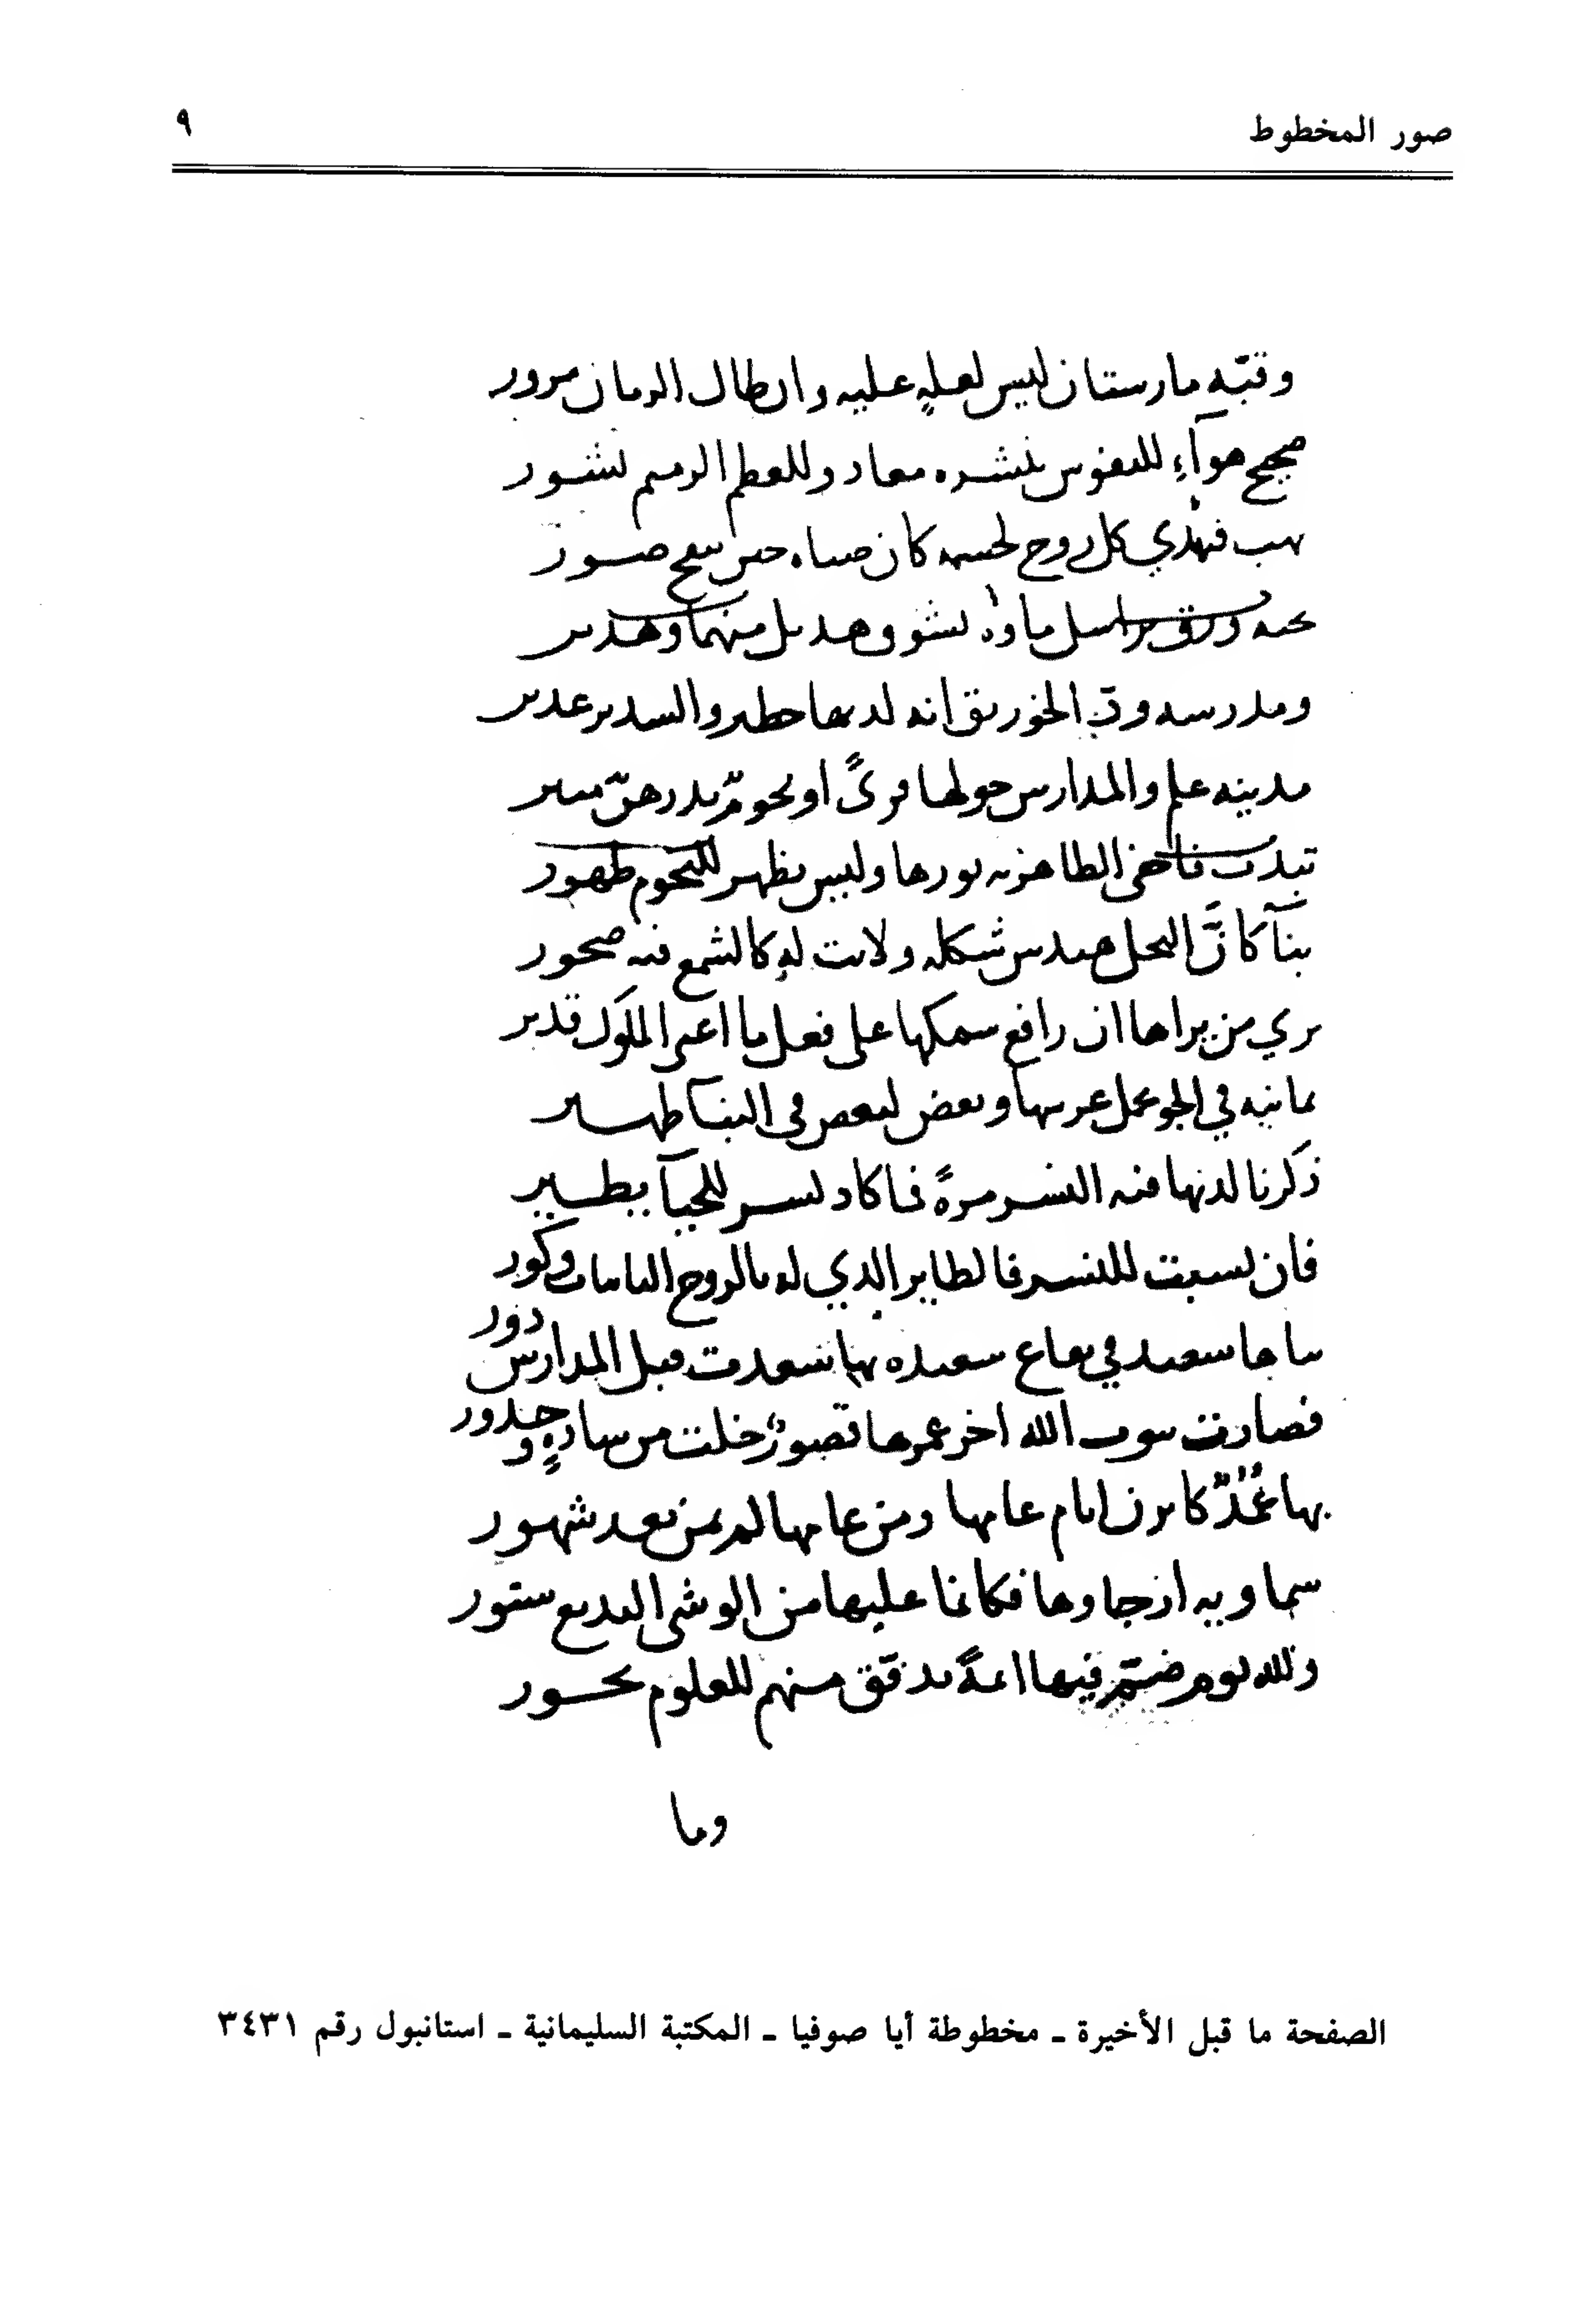 صور المخطوط
٩
وقبّه مارستان ليس لعلهٍ عليه وان طال الزمان مرور
صحيح هوآءٍ للنفوس بنشره معاد وللعظم الرميم نشور
يهب فيهدي كل روح لجسمه كان صباه حين ينفخ صور
ومدرسه ود الخورنق انه لديها حطير والسدير غدير
مدينه علم والمدارس حولها قرىً او نحوم بدرهن منير
تبدت فاخفى الظاهريه نورها وليس بظهر للنجوم ظهور
بنآ كانّ النحل هندس شكله ولانت له كالشمع فيه صخور
يري من يراها ان رافع سمكها على فعل ما اعيى الملوك قدير
ثمانيه في الجو يحمل عرشها وبعض لبعض في البنآ ظهير
ذكرنا لديها قبه النسر مرةً فما كاد نسر للحيآ يطير
فان نسبت للنسر فالطاير الذي له بالروج الثابتات وكور
بناها سعيد في بقاع سعيده بها سعدت قبل المدارس دور
فصارت بيوت الله اخر عمرها قصورٌ خلت من ساده وخدور
سماويه ارجاوها فكانما عليها من الوشى البديع ستور
ولله يوم ضمّ فيها ايمةً تدفّق منهم للعلوم بحور
وما
الصفحة ما قبل الأخيرة ـ مخطوطة أيا صوفيا ـ المكتبة السليمانية ـ استانبول رقم ٣٤٣١